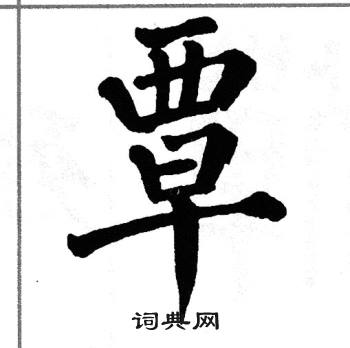 覃
词典网